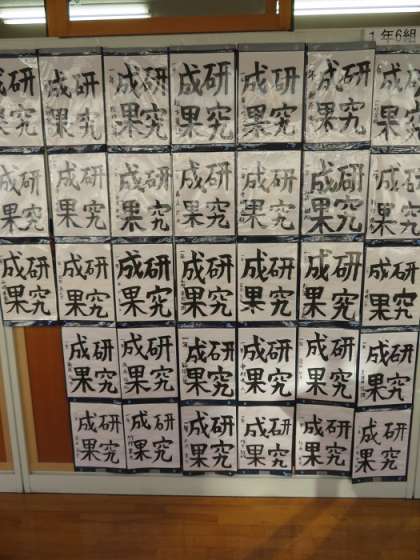 1年6組
研究
成果
研究
成果
研究
成果
研究
成果
研究
成果
研究
成果
研究
成果
研究
成果
研究
成果
研究
成果
研究
成果
研究
成果
研究
成果
研究
成果
研究
成果
研究
成果
研究
成果
研究
成果
研究
成果
研究
成果
研究
成果
研究
成果
研究
成果
研究
成果
研究
成果
研究
成果
研究
成果
研究
成果
研究
成果
研究
成果
研究
成果
研究
成果
研究
成果